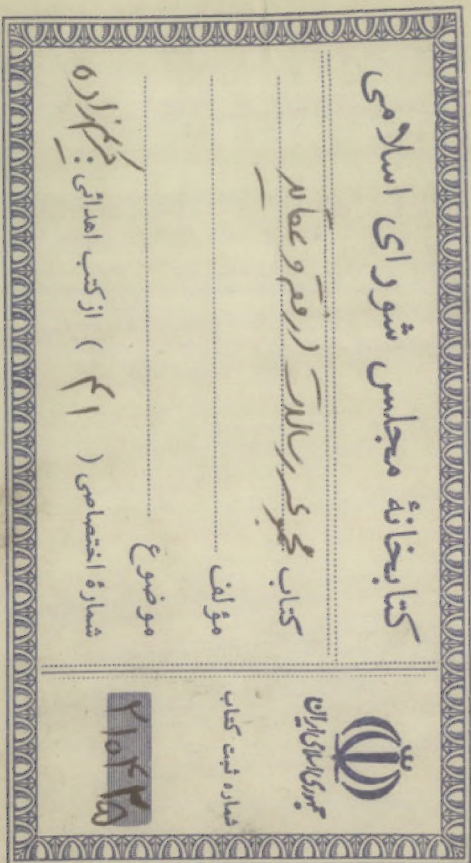 کتابخانهٔ مجلس شورای اسلامی
کتاب مجموعه رسالات در فقه و عقاید
مؤلف
موضوع
شمارهٔ اختصاصی ( ۴۱ ) از کتب اهدائی :
جمهوری اسلامی ایران
شماره ثبت کتاب